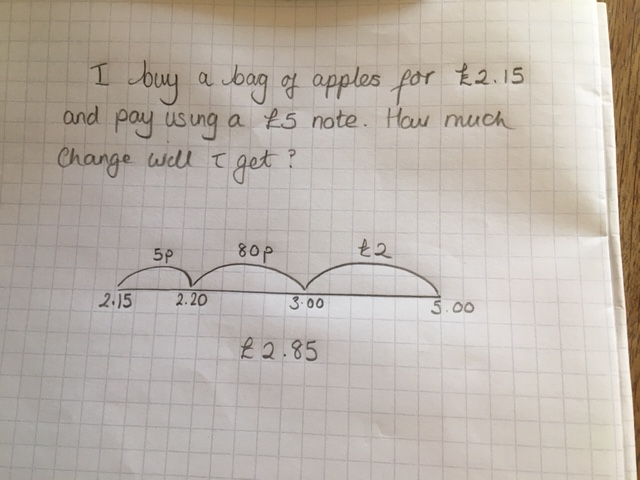 I buy a bag of apples for £2.15
and pay using a £5 note. How much
change will I get?
5p 80p £2
2.15 2.20 3.00 5.00
£2.85